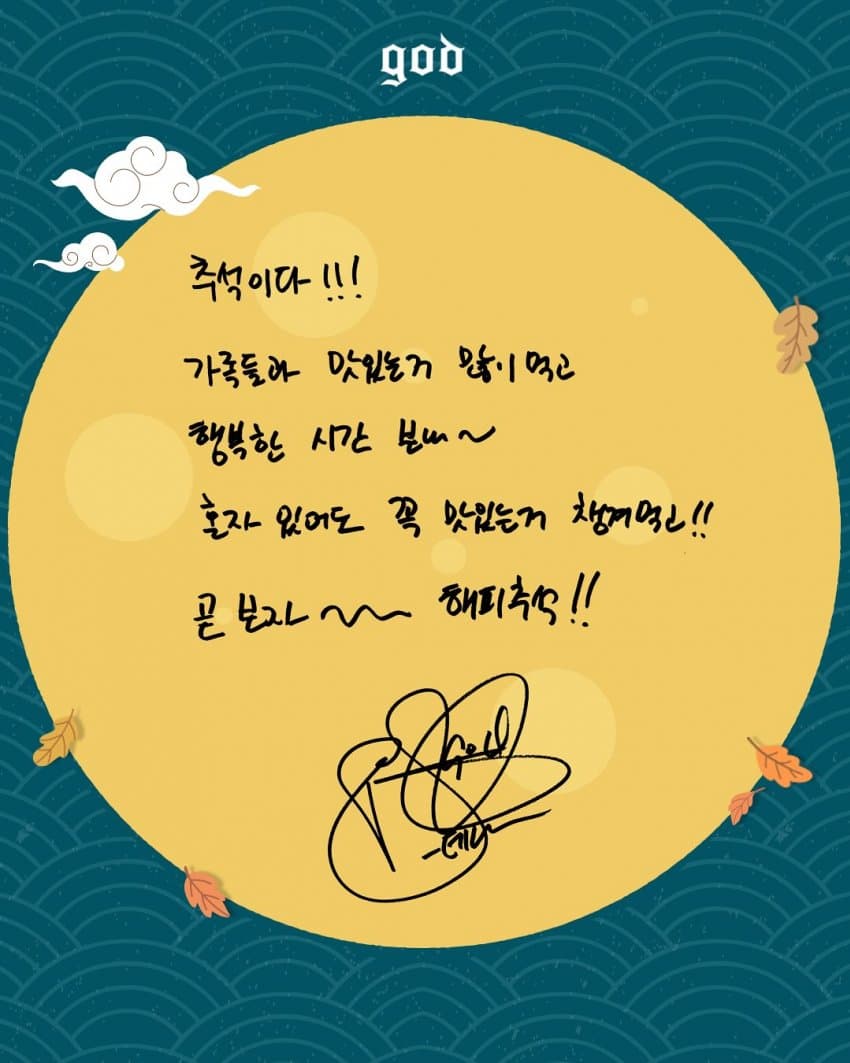 god
추석이다!!!
가족들과 맛있는거 많이 먹고
행복한 시간 보내~
혼자 있어도 꼭 맛있는거 챙겨먹고!!
곧 보자~~~ 해피추석!!
god
-데니